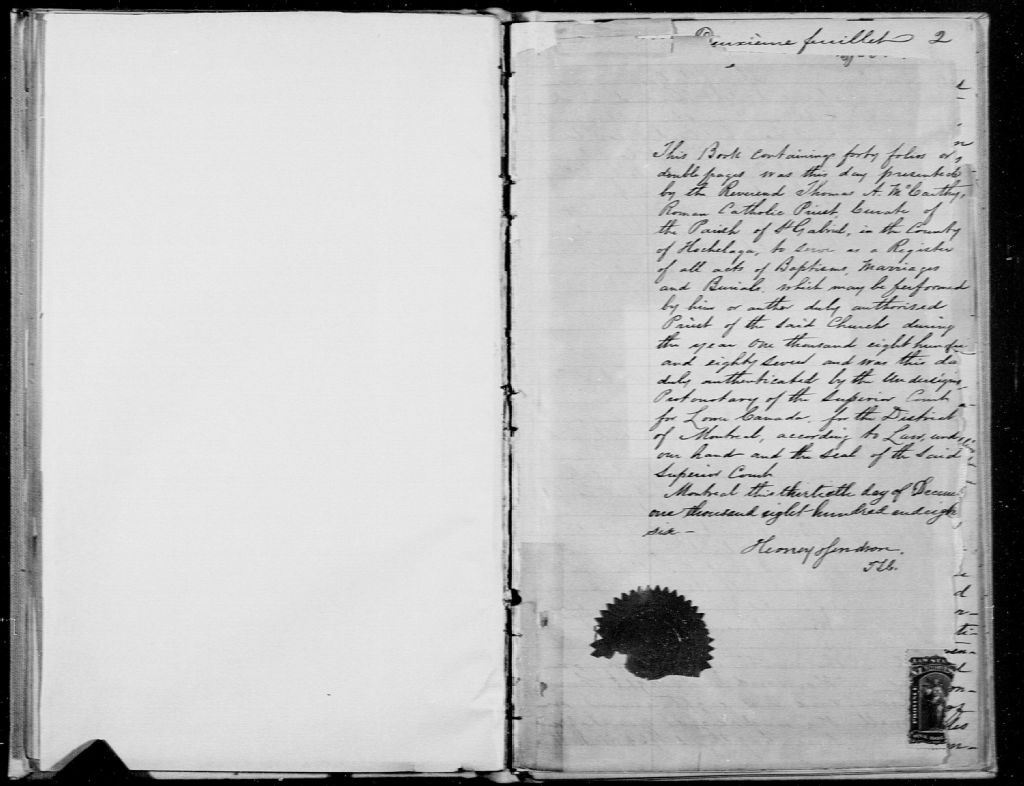 Deuxième feuillet 2
This Book containing forty folios or
double pages was this day presented
by the Reverend Thomas A. McCarthy,
Roman Catholic Priest, Curate of
the Parish of St Gabriel, in the County
of Hochelaga, to serve as a Register
of all acts of Baptisms, Marriages
and Burials, which may be performed
by him or other duly authorised
Priest of the said Church during
the year One thousand eight hundre
and eighty seven and was this da
duly authenticated by the Undersigne
Protonotary of the Superior Court
for Lower Canada, for the District
of Montreal, according to Law, under
our hand and the seal of the Said
Superior Court
Montreal this thirtieth day of Decem
one thousand eight hundred and eigh
six -